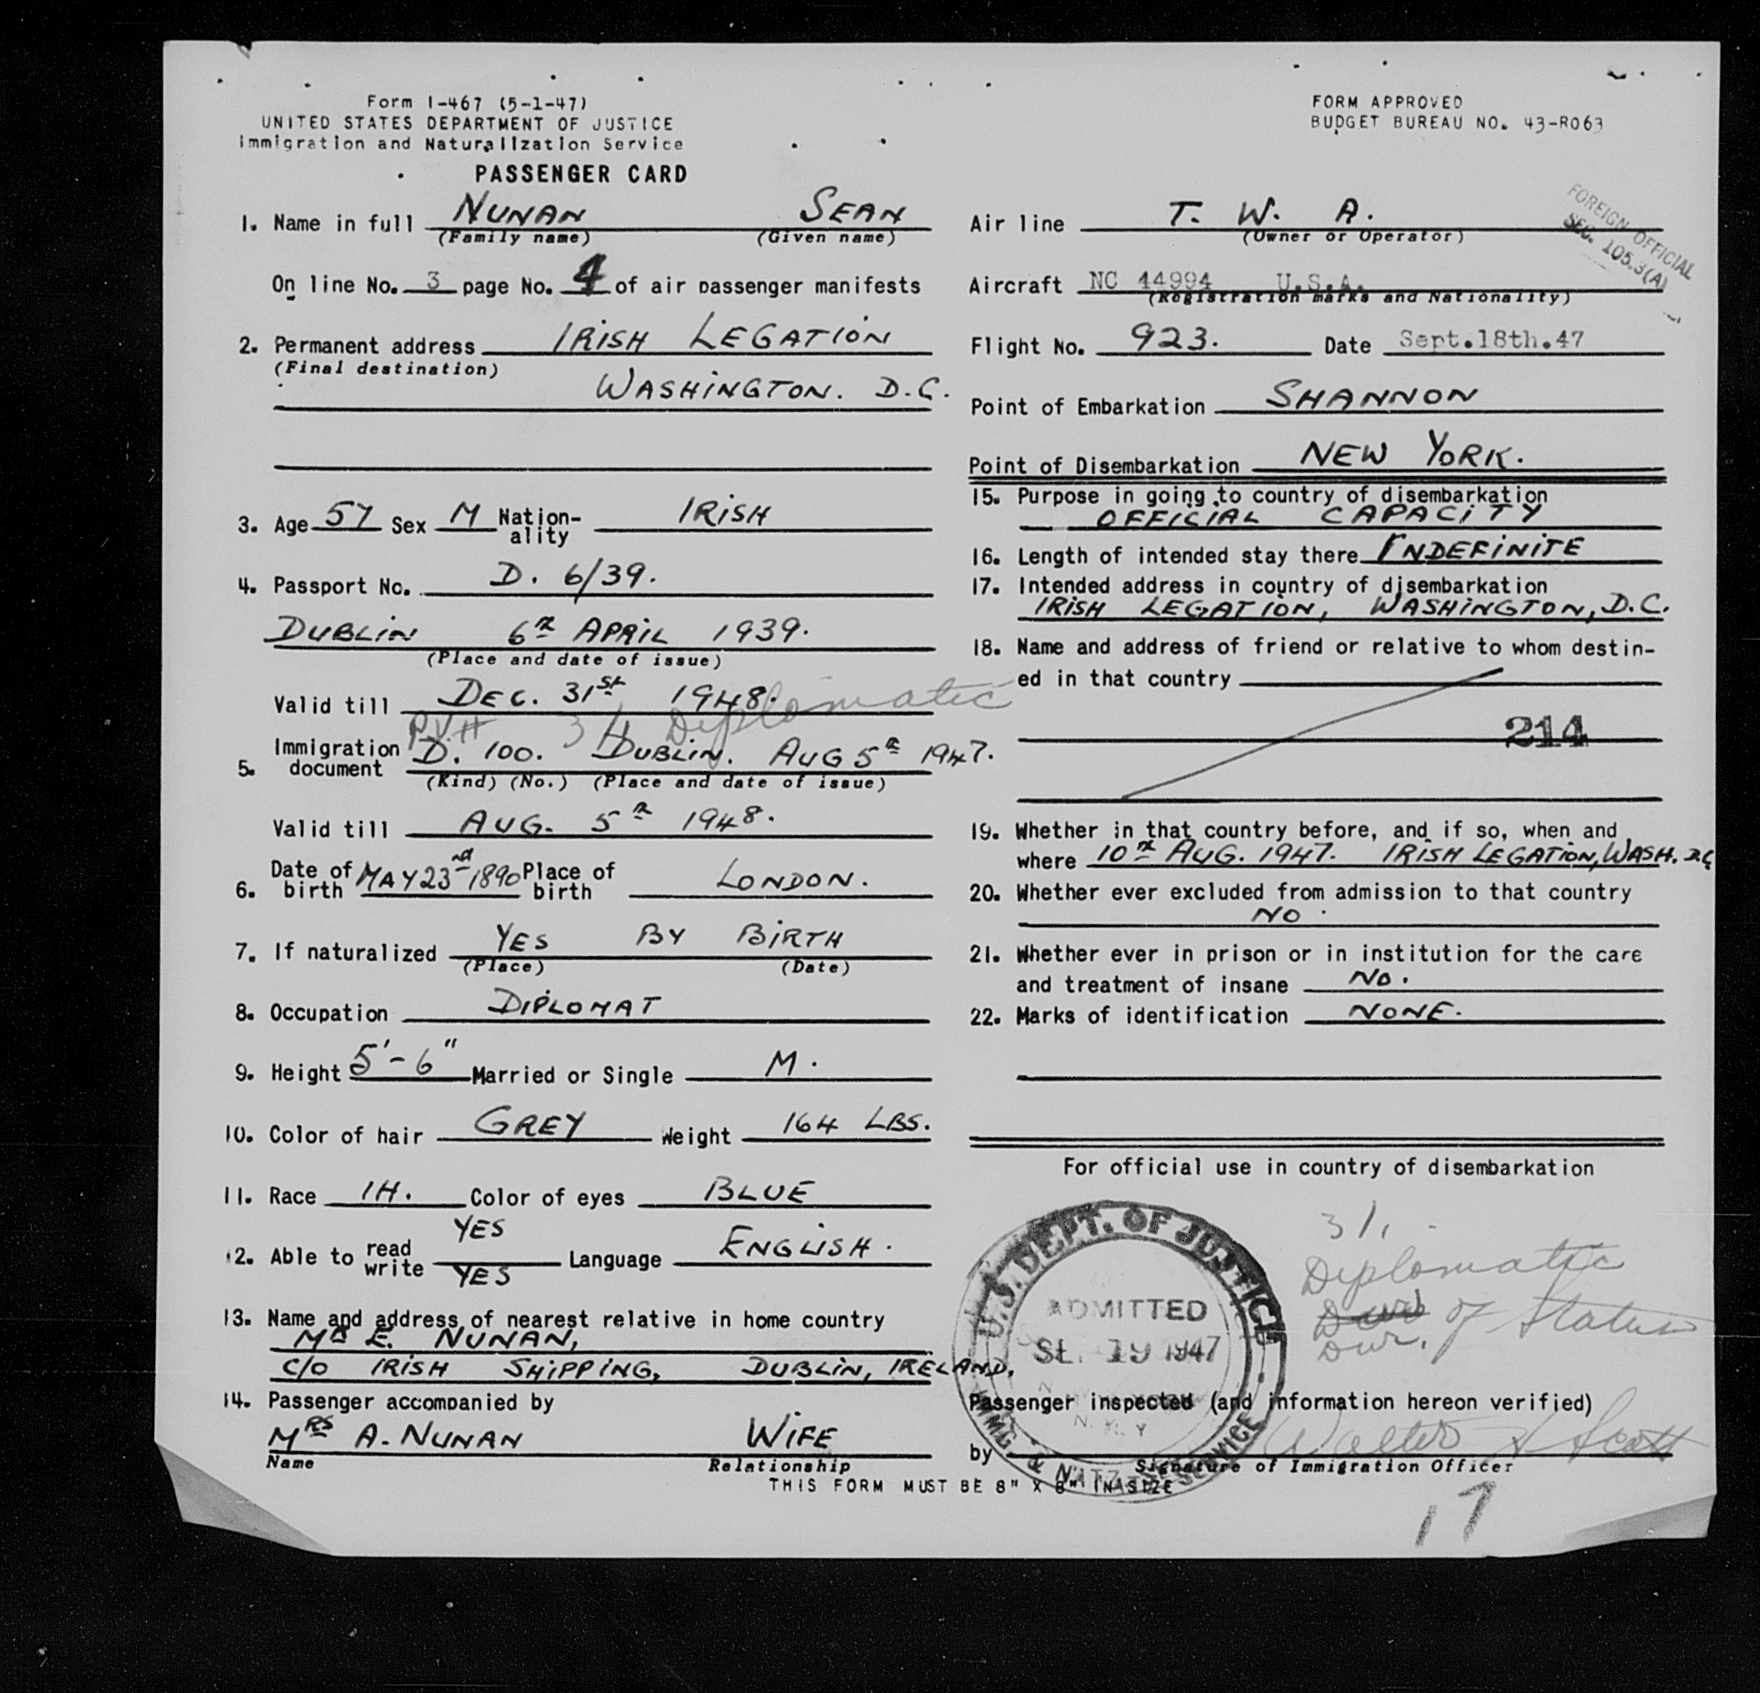 Form I-467 (5-1-47)
UNITED STATES DEPARTMENT OF JUSTICE
Immigration and Naturalization Service
PASSENGER CARD
FORM APPROVED
BUDGET BUREAU NO. 43-R063
1. Name in full NUNAN SEAN
(Family name) (Given name)
On line No. 3 page No. 4 of air passenger manifests
2. Permanent address IRISH LEGATION
(Final destination)
WASHINGTON. D.C.
3. Age 57 Sex M Nation-ality IRISH
4. Passport No. D. 6/39.
DUBLIN 6th APRIL 1939.
(Place and date of issue)
Valid till DEC. 31st 1948.
3/1 Diplomatic
5. Immigration document D. 100. DUBLIN. AUG 5th 1947.
(Kind) (No.) (Place and date of issue)
Valid till AUG. 5th 1948.
6. Date of birth MAY 23rd 1890 Place of birth LONDON.
7. If naturalized YES BY BIRTH
(Place) (Date)
8. Occupation DIPLOMAT
9. Height 5'-6" Married or Single M.
10. Color of hair GREY Weight 164 LBS.
11. Race IH. Color of eyes BLUE
12. Able to read YES write YES Language ENGLISH.
13. Name and address of nearest relative in home country
E. NUNAN,
C/O IRISH SHIPPING, DUBLIN, IRELAND.
14. Passenger accompanied by
MRS A. NUNAN WIFE
Name Relationship
THIS FORM MUST BE 8" X 8" IN SIZE
Air line T. W. A.
(Owner or Operator)
FOREIGN OFFICIAL
SEC. 105.3(A)
Aircraft NC 44994 U.S.A.
(Registration marks and Nationality)
Flight No. 923. Date Sept.18th.47
Point of Embarkation SHANNON
Point of Disembarkation NEW YORK.
15. Purpose in going to country of disembarkation
OFFICIAL CAPACITY
16. Length of intended stay there INDEFINITE
17. Intended address in country of disembarkation
IRISH LEGATION, WASHINGTON, D.C.
18. Name and address of friend or relative to whom destin-
ed in that country
214
19. Whether in that country before, and if so, when and
where 10th AUG. 1947. IRISH LEGATION, WASH. D.C.
20. Whether ever excluded from admission to that country
NO.
21. Whether ever in prison or in institution for the care
and treatment of insane NO.
22. Marks of identification NONE.
For official use in country of disembarkation
U.S. DEPT. OF JUSTICE
ADMITTED
SE 19 1947
N. Y.
IMMG. & NATZ. SERVICE
3/1
Diplomatic
of Status
Dur.
Passenger inspected (and information hereon verified)
by Walter Scott
Signature of Immigration Officer
17